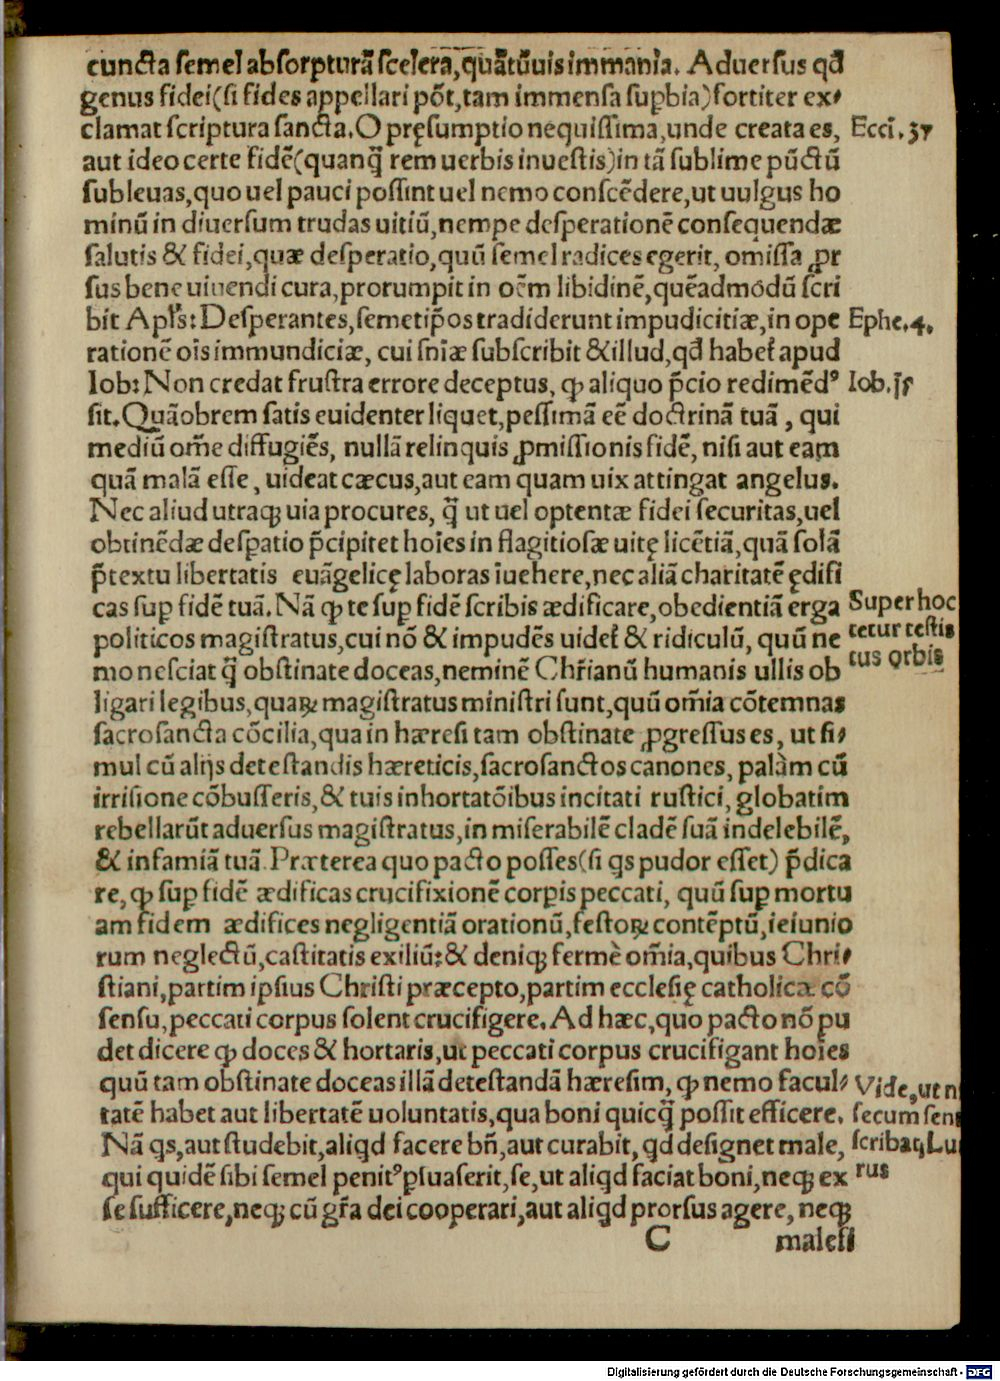 cuncta ſemel abſorpturã ſcelera, quãtũuis immania. Aduerſus qđ
genus fidei (ſi fides appellari põt, tam immenſa ſuꝑbia) fortiter ex⸗
clamat ſcriptura ſancta. O pręſumptio nequiſſima, unde creata es,
Eccĩ. 37
aut ideo certe fidẽ (quanq̃ rem uerbis inueſtis) in tã ſublime pũctũ
ſubleuas, quo uel pauci poſſint uel nemo conſcẽdere, ut uulgus ho
minũ in diuerſum trudas uitiũ, nempe deſperationẽ conſequendæ
ſalutis & fidei, quæ deſperatio, quũ ſemel radices egerit, omiſſa ꝓr
ſus bene uiuendi cura, prorumpit in oẽm libidinẽ, quẽadmodũ ſcri
bit Apl̃s: Deſperantes, ſemetip̃os tradiderunt impudicitiæ, in ope
Ephe. 4.
rationẽ oĩs immundiciæ, cui ſñiæ ſubſcribit & illud, qđ habet̃ apud
Iob: Non credat fruſtra errore deceptus, ꝙ aliquo p̃cio redimẽdꝰ
Iob. jſ
ſit. Quãobrem ſatis euidenter liquet, peſſimã eẽ doctrinã tuã, qui
mediũ om̃e diffugiẽs, nullã relinquis ꝓmiſſionis fidẽ, niſi aut eam
quã malã eſſe, uideat cæcus, aut eam quam uix attingat angelus.
Nec aliud utraqꝫ uia procures, q̃ ut uel optentæ fidei ſecuritas, uel
obtinẽdæ deſpatio p̃cipitet hoĩes in flagitioſæ uitę licẽtiã, quã ſolã
p̃textu libertatis euãgelicę laboras ĩuehere, nec aliã charitatẽ ędifi
cas ſuꝑ fidẽ tuã. Nã ꝙ te ſuꝑ fidẽ ſcribis ædificare, obedientiã erga
Super hoc
politicos magiſtratus, cui nõ & impudẽs uidet̃ & ridiculũ, quũ ne
cetur teſtis
mo neſciat q̃ obſtinate doceas, neminẽ Chr̃ianũ humanis ullis ob
tus orbis
ligari legibus, quaꝝ magiſtratus miniſtri ſunt, quũ om̃ia cõtemnas
ſacroſancta cõcilia, qua in hæreſi tam obſtinate ꝓgreſſus es, ut ſi⸗
mul cũ alijs deteſtandis hæreticis, ſacroſanctos canones, palàm cũ
irriſione cõbuſſeris, & tuis inhortatõibus incitati ruſtici, globatim
rebellarũt aduerſus magiſtratus, in miſerabilẽ cladẽ ſuã indelebilẽ,
& infamiã tuã. Præterea quo pacto poſſes (ſi qs pudor eſſet) p̃dica
re, ꝙ ſuꝑ fidẽ ædificas crucifixionẽ corpis peccati, quũ ſuꝑ mortu
am fidem ædifices negligentiã orationũ, feſtoꝝ contẽptũ, ieiunio
rum neglectũ, caſtitatis exiliũ: & deniqꝫ fermè om̃ia, quibus Chri⸗
ſtiani, partim ipſius Chriſti præcepto, partim eccleſię catholicæ cõ
ſenſu, peccati corpus ſolent crucifigere. Ad hæc, quo pacto nõ pu
det dicere ꝙ doces & hortaris, ut peccati corpus crucifigant hoĩes
quũ tam obſtinate doceas illã deteſtandã hæreſim, ꝙ nemo facul⸗
Vide, ut n
tatẽ habet aut libertatẽ uoluntatis, qua boni quicq̃ poſſit efficere.
ſecum ſen
Nã qs, aut ſtudebit, aliqd facere bñ, aut curabit, qd deſignet male,
ſcribat, Lu
qui quidẽ ſibi ſemel penitꝰ ꝑſuaſerit, ſe, ut aliqd faciat boni, neqꝫ ex
rus
ſe ſufficere, neqꝫ cũ gr̃a dei cooperari, aut aliqd prorſus agere, neqꝫ
C malefi
Digitalisierung gefördert durch die Deutsche Forschungsgemeinschaft - DFG